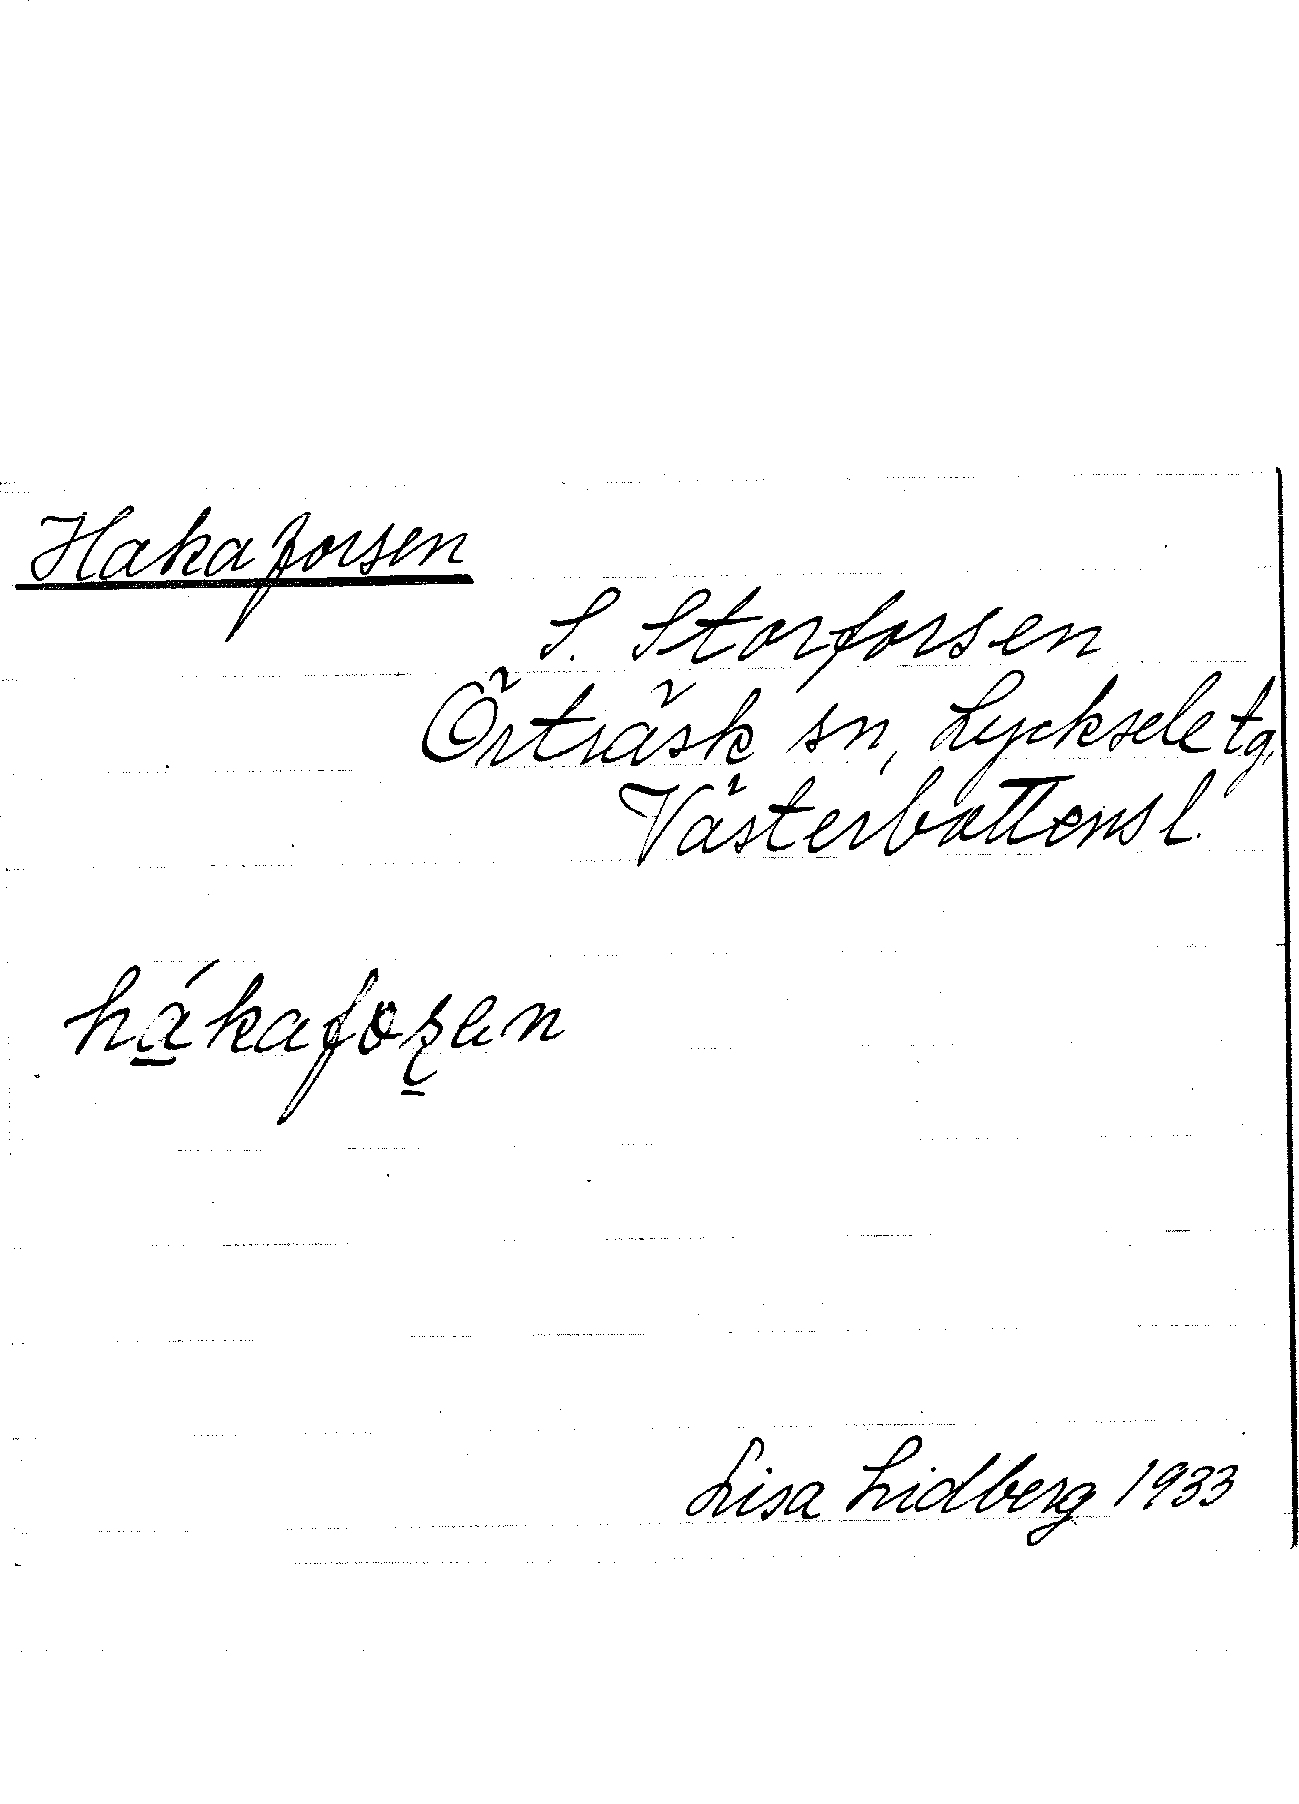 Hakaforsen
S. Storforsen
Örträsk sn, Lycksele tg,
Västerbottens l.
há̱kafoʂ̱en
Lisa Lidberg 1933